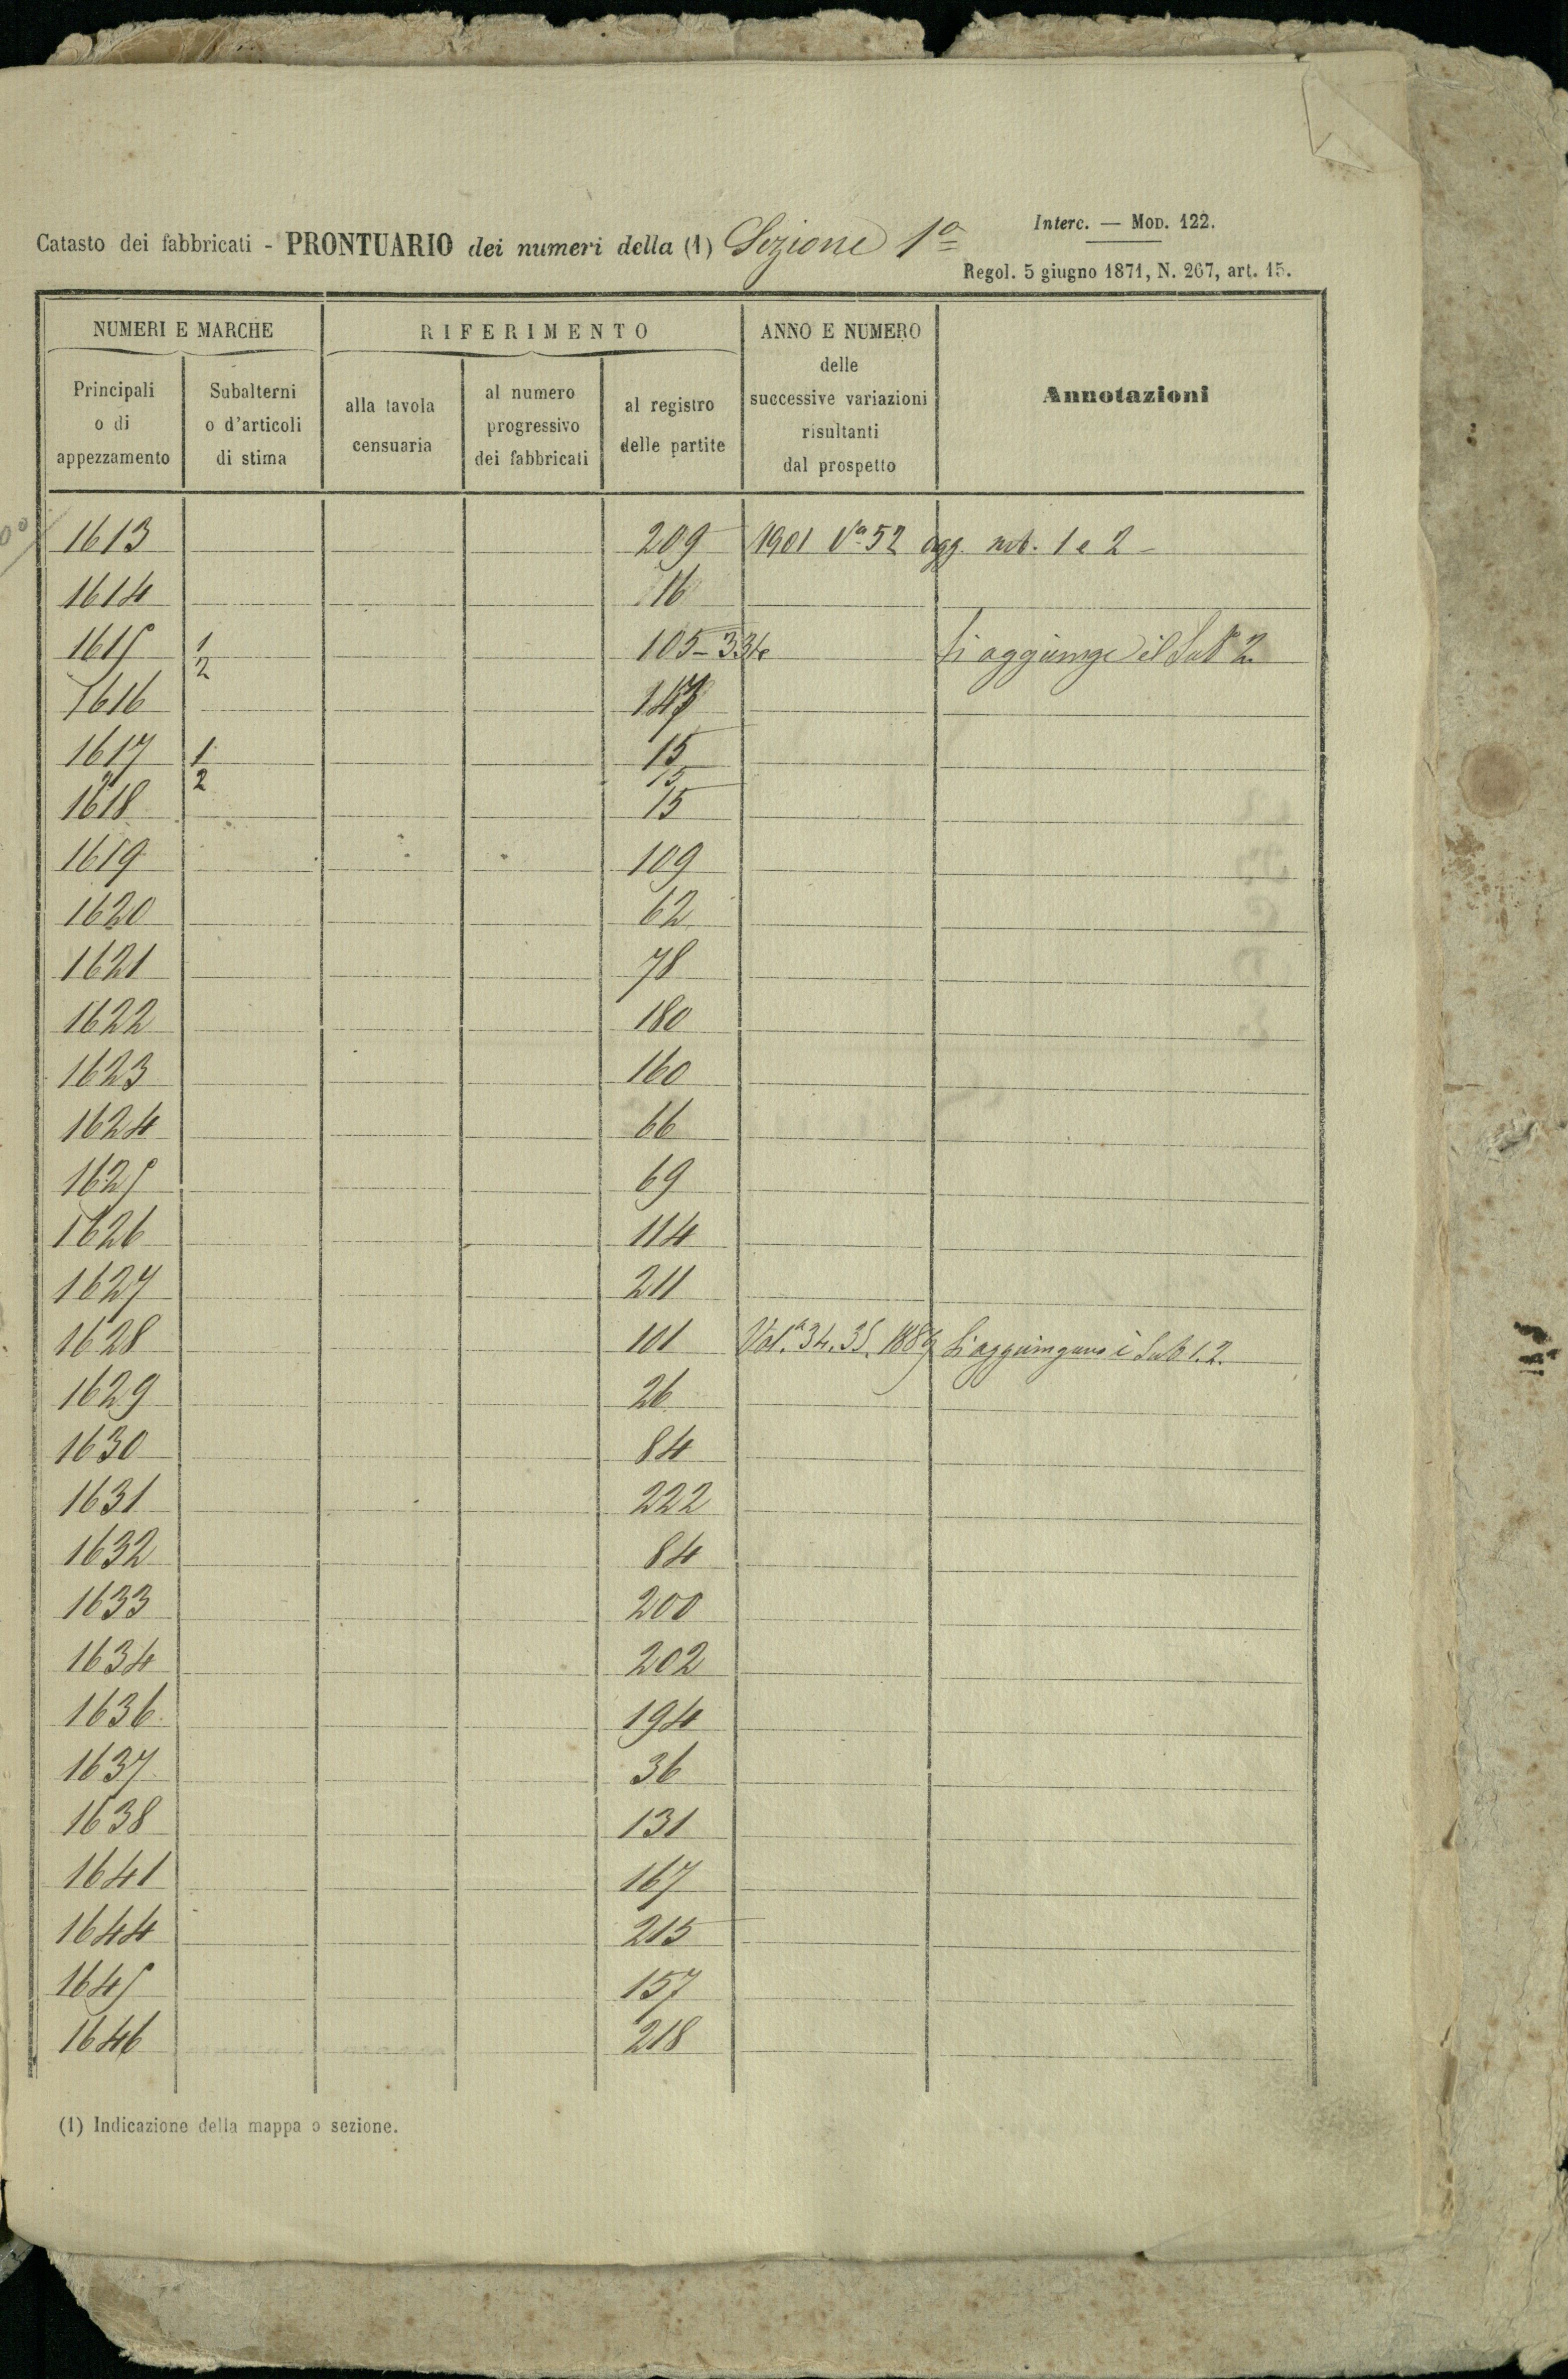 Interc. — Mod. 122.
Catasto dei fabbricati - PRONTUARIO dei numeri della (1) Sezione 1a
Regol. 5 giugno 1871, N. 267, art. 15.
NUMERI E MARCHE RIFERIMENTO ANNO E NUMERO delle successive variazioni risultanti dal prospetto Annotazioni
Principali o di appezzamento Subalterni o d'articoli di stima alla tavola censuaria al numero progressivo dei fabbricati al registro delle partite
1613 209 1901 Va 52 agg. sub. 1 e 2
1614 16
1615 1 105-334 Si aggiunge il Sub 2.
2
1616
1617 1 15
2 15
1618 15
1619 109
1620 62
1621 78
1622 180
1623 160
1624 66
1625 69
1626 114
1627 211
1628 101 34.35. Si aggiungono i Sub 1.2.
1629 26
1630 84
1631 222
1632 84
1633 200
1634 202
1636 194
1637 36
1638 131
1641 167
1644 215
1645 157
1646 218
(1) Indicazione della mappa o sezione.